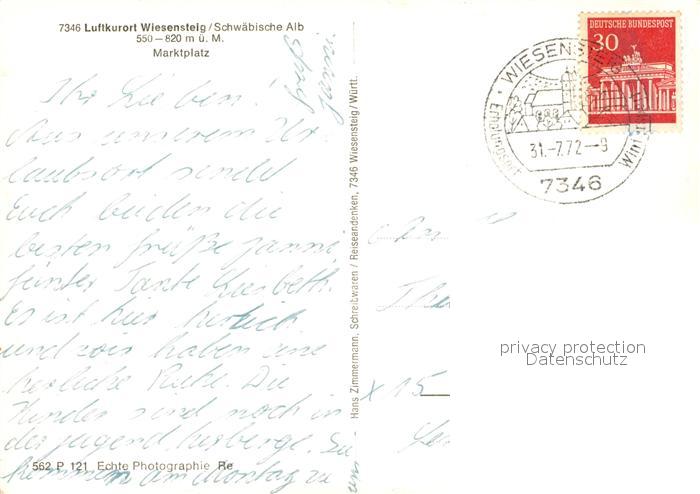 7346 Luftkurort Wiesensteig / Schwäbische Alb
550–820 m ü. M.
Marktplatz
Ihr Lieben!
Aus unserem Ur-
laubsort sendet
Euch beiden die
besten Grüße
Tante Liesbeth.
Es ist hier herrlich
und wir haben eine
herrliche Ruhe. Die
Kinder sind noch in
der Jugendherberge. Sie
kommen am Montag zu
562 P 121 Echte Photographie Re
Hans Zimmermann, Schreibwaren / Reiseandenken, 7346 Wiesensteig/Württ.
DEUTSCHE BUNDESPOST
30
WIESENSTEIG
31.-7.72--9
7346
X 15
privacy protection
Datenschutz